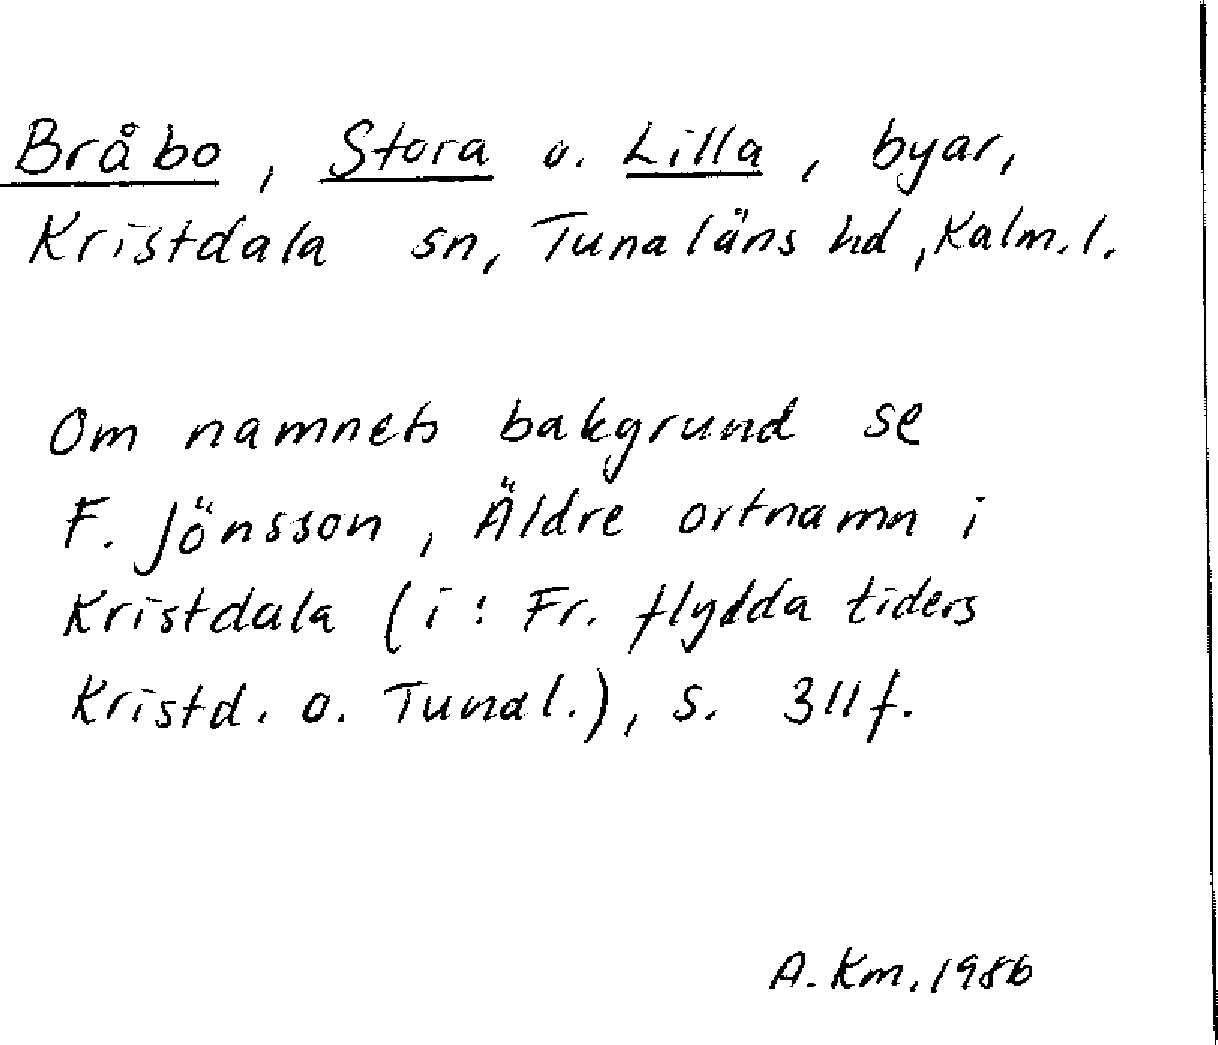 Bråbo, Stora o. Lilla, byar,
Kristdala sn, Tunaläns hd, Kalm. l.
Om namnets bakgrund se
F. Jönsson, Äldre ortnamn i
Kristdala (i: Fr. flydda tiders
Kristd. o. Tunal.), s. 311f.
A. Km. 1986